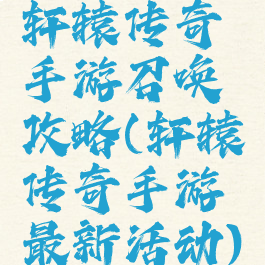 轩辕传奇
手游召唤
攻略(轩辕
传奇手游
最新活动)